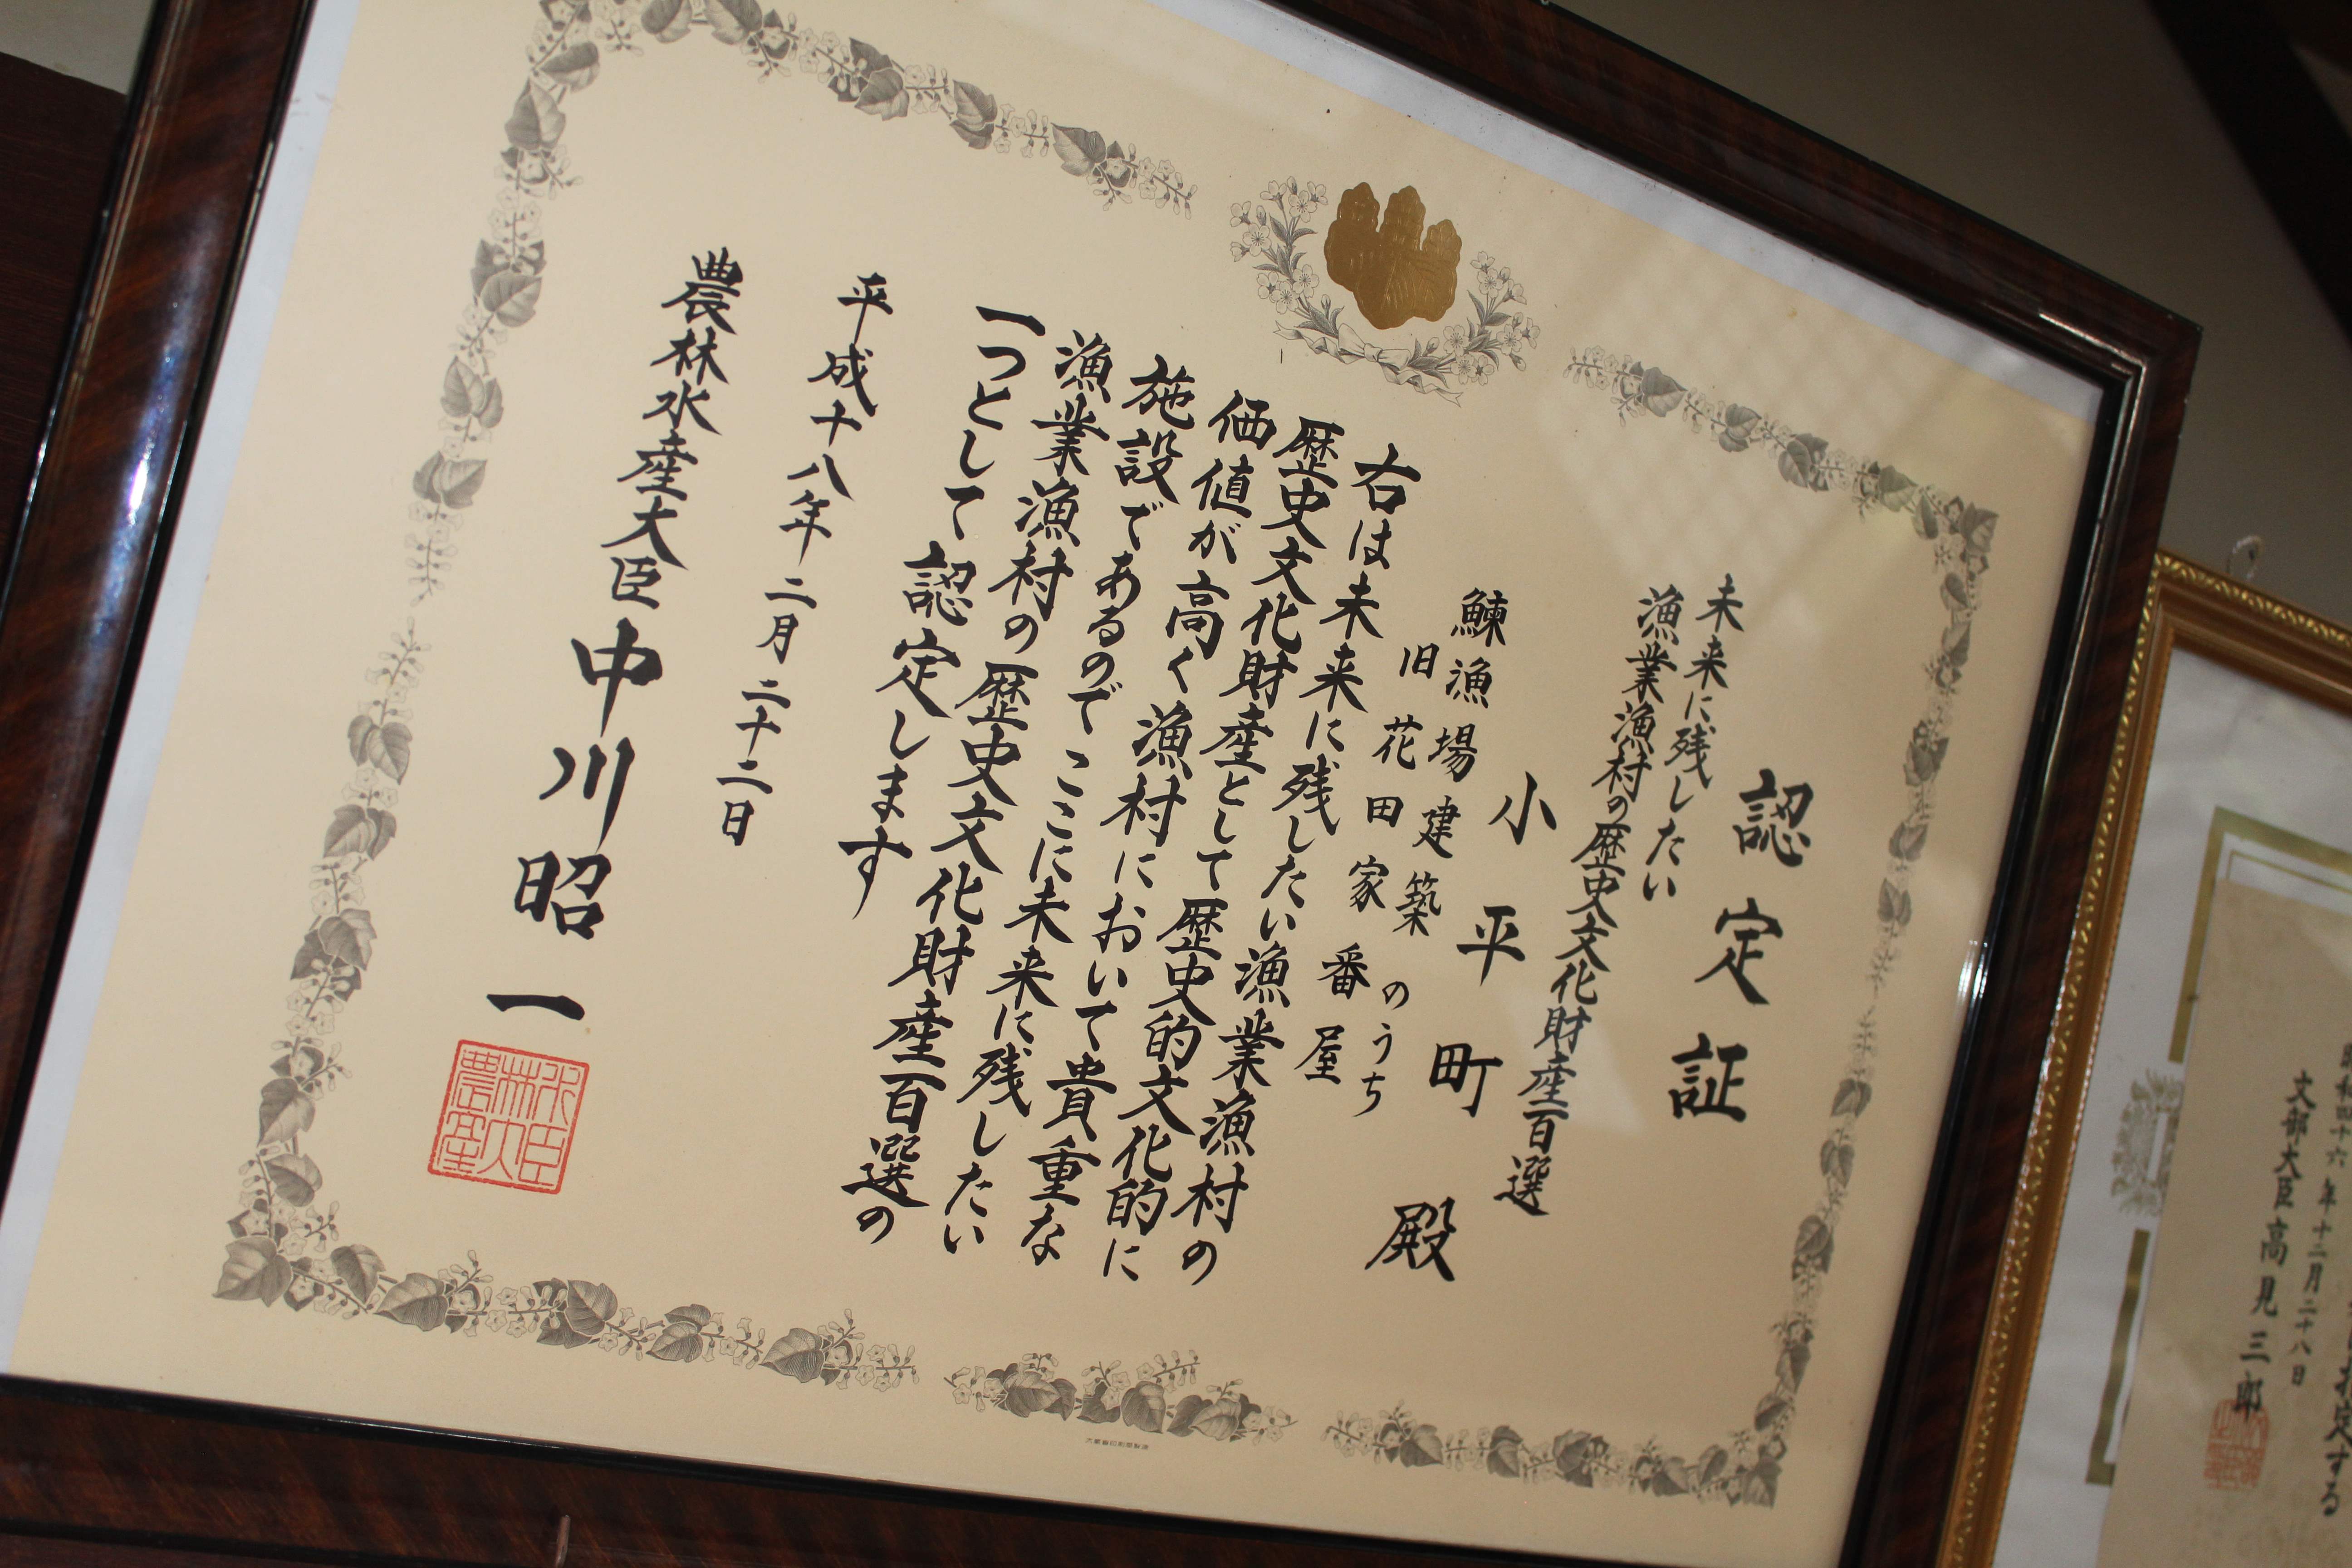 認定証
未来に残したい
漁業漁村の歴史文化財産百選
小平町 殿
鰊漁場建築のうち
旧花田家番屋
右は未来に残したい漁業漁村の
歴史文化財産として歴史的文化的に
価値が高く漁村において貴重な
施設であるのでここに未来に残したい
漁業漁村の歴史文化財産百選の
一つとして認定します
平成十八年二月二十二日
農林水産大臣 中川昭一
定する
昭和四十六年十二月二十八日
文部大臣 高見三郎